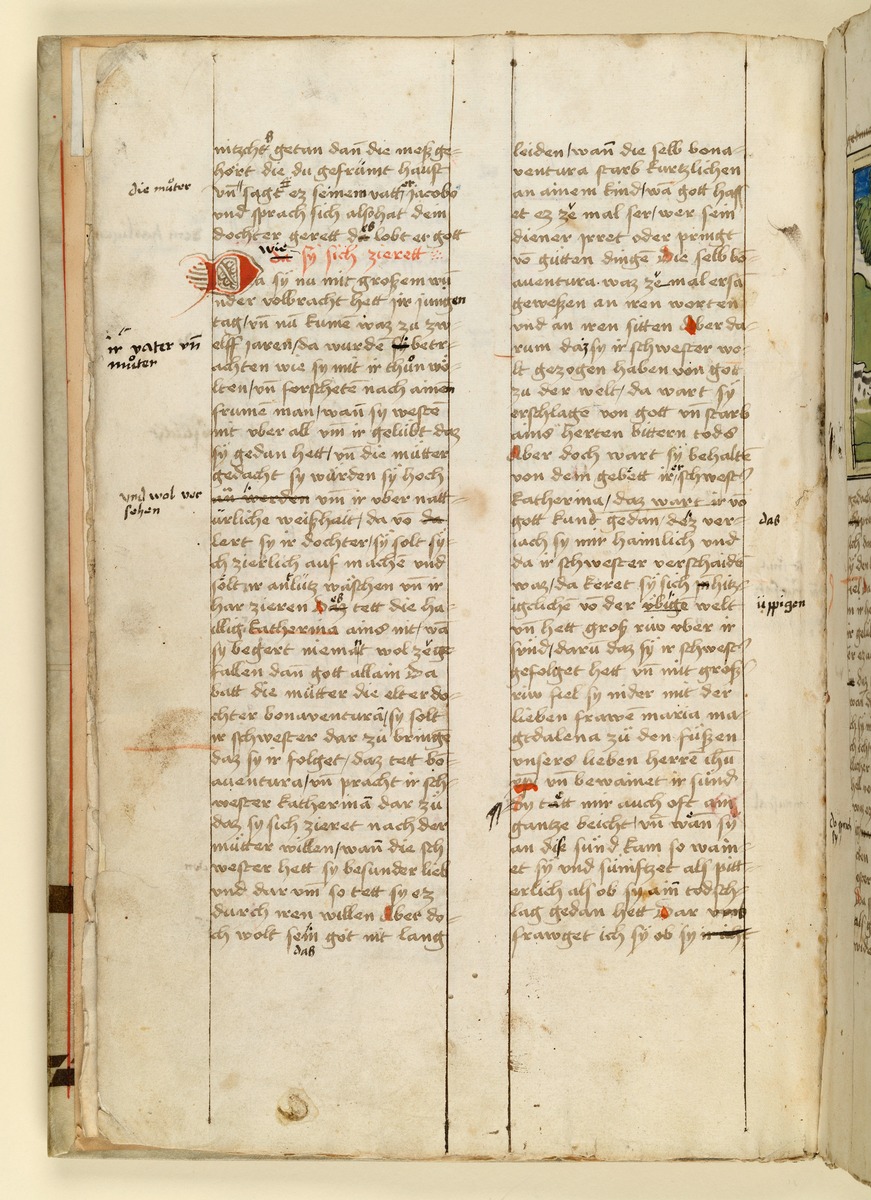 nitzchtz getan dañ die mess ge-
hört die du gefrümt haust
die mu̇ter
vn̄ sagt ez seinem vatter jacobo
und sprach sich also hat dem
dochter gerett des lobt er gott
wie sy sich zierett
Da sy nu mit großem wu̇-
nder volbracht hett jir jungen
tag / vn̄ nu̇ kume waz zu̇ zw-
elff jaren / da wurde betr-
ir vater vn̄
mu̇ter
achten wie sy mit ir thu̇n wö-
lten / vn̄ forschete nach aine
frume man / wan̄ sy weste
nit vber all vm̄ ir gelübt daz
sy gedan hett / vn̄ die mu̇tter
gedacht sy würden sy hoch
vnd wol ver
sehen
an werden vm̄ ir vber natt-
ürliche weißhait / da vo da
lart sy ir dochter / sy solt sy-
ch zierlich auf machen vnd
solt ir anlütz wäschen vn̄ ir
har zieren Des tett die ha-
illig katherina ains nit / wā
sy begert niemāt wol ze ge-
fallen dan̄ gott allain Da
batt die mu̇tter die elter do-
chter bonaventurā / sy solt
ir schwester dar zu̇ bringe
daz sy ir folget / daz tett bo-
aventura / vn̄ pracht ir sch-
wester katherinā dar zu̇
daz sy sich zieret nach der
mu̇tter willen / wan̄ die sch-
wester hett sy besunder lieb
vnd dar vm̄ so tett sy ez
durch iren willen Aber do-
ch wolt sein got nit lang
das
leiden / wan̄ die selb bona-
ventura starb kurtzlichen
an ainem kind / wā gott hass
et ez ze mal ser / wer sein
diener jrret oder pringt
vō gu̇tten dinge Die selb bo-
aventura waz ze mal ersā
gewessen an iren worten
vnd an iren sitten Aber da-
rum daz sy ir schwester wo-
lt gezogen haben von got
zu̇ der welt / da wart sy
erschlage von gott vn̄ starb
ains herten bittern tods
Aber doch wart sy behalte
von dem gebett ir schwest
katherina / daz wart ir vō
gott kunt gedan / dez ver-
das
iach sy mir haimlich vnd
da ir schwester verschaide
waz / da keret sy sich hitz-
igclichē vo der übige welt
üppigen
vn̄ hett groß riw vber ir
sünd / daru̇ daz sy ir schwest
gefolget hett vn̄ mit groß
riw fiel sy nider mit der
lieben frawē maria ma-
gtdalena zu̇ den füssen
vnsers lieben herrē ihū
xp̄i vn̄ bewainet ir sünd
Sy tätt mir auch oft ain
gantze beicht / vn̄ wan̄ sy
an die sünd kam so wain-
et sy vnd sünftzet als pitt-
erlich als ob sy ain̄ todsch-
lag gedan hett Dar vmb
frawget ich sy ob sy ir icht